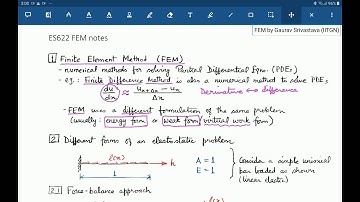 3:00
FEM by Gaurav Srivastava (IITGN)
ES622 FEM notes
1 Finite Element Method (FEM)
- numerical methods for solving Partial Differential Eqns. (PDEs)
- e.g.: Finite Difference Method is also a numerical method to solve PDEs
du/dx ≈ (u_{x+Δx} - u_x)/Δx Derivative ↔ difference
- FEM uses a different formulation of the same problem
(usually: energy form or weak form / virtual work form)
2 Different forms of an elastostatic problem
l(x)
x
1
A = 1
E = 1
Consider a simple uniaxial
bar loaded as shown
(linear elastic)
2.1 Force-balance approach
l(x)